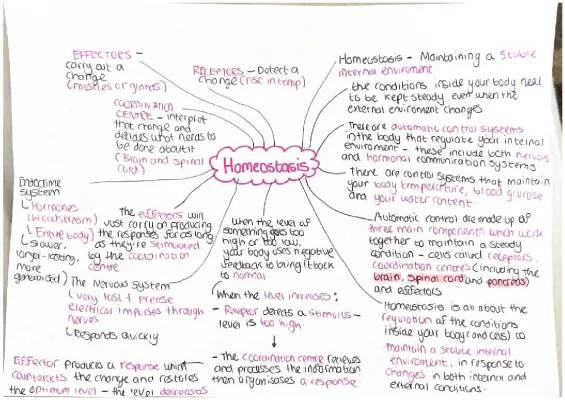 EFFECTORS -
carry out a
change
(muscles or glands)
RECEPTORS - Detect a
change (rise in temp)
COORDINATION
CENTRE - interpret
that change and
decides what needs to
be done about it
(Brain and spinal
cord)
Homeostasis
Homeostasis - Maintaining a Stable
internal enviroment
the conditions inside your body need
to be kept steady even when the
external enviroment changes
There are automatic control systems
in the body that regulate your internal
enviroment - these include both nervous
and hormonal communication systems
There are control systems that maintain
your body temperature, blood glucose
and your water content.
Automatic control are made up of
three main components which work
together to maintain a steady
condition - cells called receptors,
coordination centres (including the
brain, spinal cord and pancreas)
and effectors
Homeostasis is all about the
regulation of the conditions
inside your body (and cells) to
maintain a stable internal
enviroment, in response to
changes in both internal and
external conditions.
Endocrine
system
Hormones
(bloodstream)
(Entire body)
(slower,
longer-lasting,
more
generalised)
The effectors will
just carry on producing
the responses for as long
as they're stimulated
by the coordination
centre
The Nervous System
(very fast + precise
electrical impulses through
nerves
Responds quickly
when the level of
something gets too
high or too low,
your body uses negative
feedback to bring it back
to normal
When the level increases:
- Receptor detects a stimulus -
level is too high
- The coordination centre receives
and processes the information
then organises a response
Effector produces a response which
counteracts the change and restores
the optimum level - the level decreases